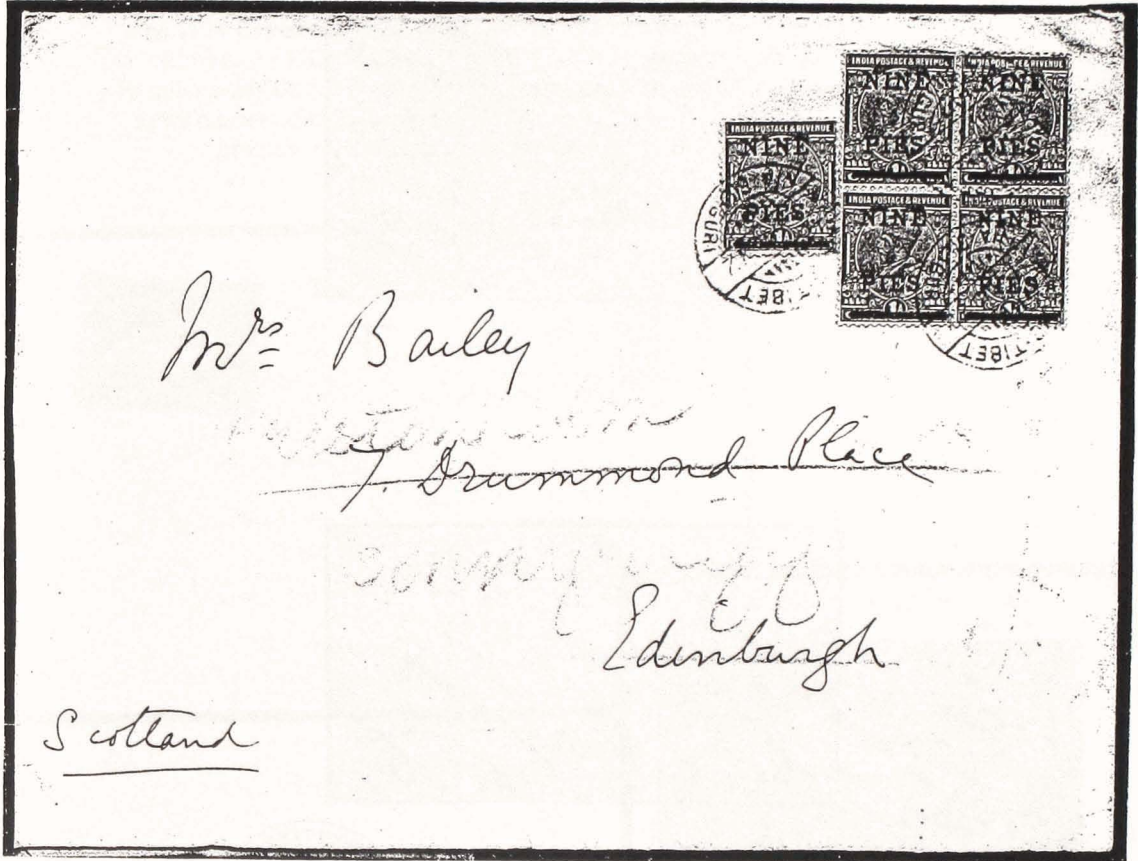 INDIA POSTAGE & REVENUE
NINE
PIES
INDIA POSTAGE & REVENUE
NINE
PIES
INDIA POSTAGE & REVENUE
NINE
PIES
INDIA POSTAGE & REVENUE
NINE
PIES
INDIA POSTAGE & REVENUE
NINE
PIES
TIBET
TIBET
Mrs Bailey
7. Drummond Place
Edinburgh
Scotland